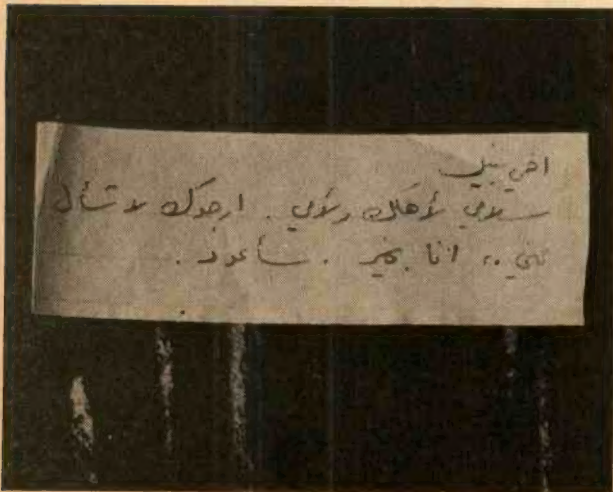 اخي نبيل
سلامي لأهلك ولأمي . ارجوك لا تسأل
عني .. انا بخير . سأعود .